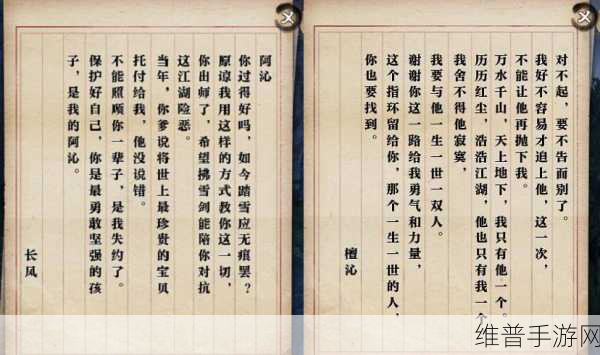 阿沁
你过得好吗，如今踏雪应无痕罢？
原谅我用这样的方式教你这一切，
你出师了，希望拂雪剑能陪你对抗
这江湖险恶。
当年，你爹说将世上最珍贵的宝贝
托付给我，他没说错。
不能照顾你一辈子，是我失约了。
保护好自己，你是最勇敢坚强的孩
子，是我的阿沁。
长风
对不起，要不告而别了。
我好不容易才追上他，这一次，
不能让他再抛下我。
万水千山，天上地下，我只有他一个。
历历红尘，浩浩江湖，他也只有我一个
我舍不得他寂寞，
我要与他一生一世一双人。
谢谢你这一路给我勇气和力量，
这个指环留给你，那个一生一世的人，
你也要找到。
檀沁
维普手游网